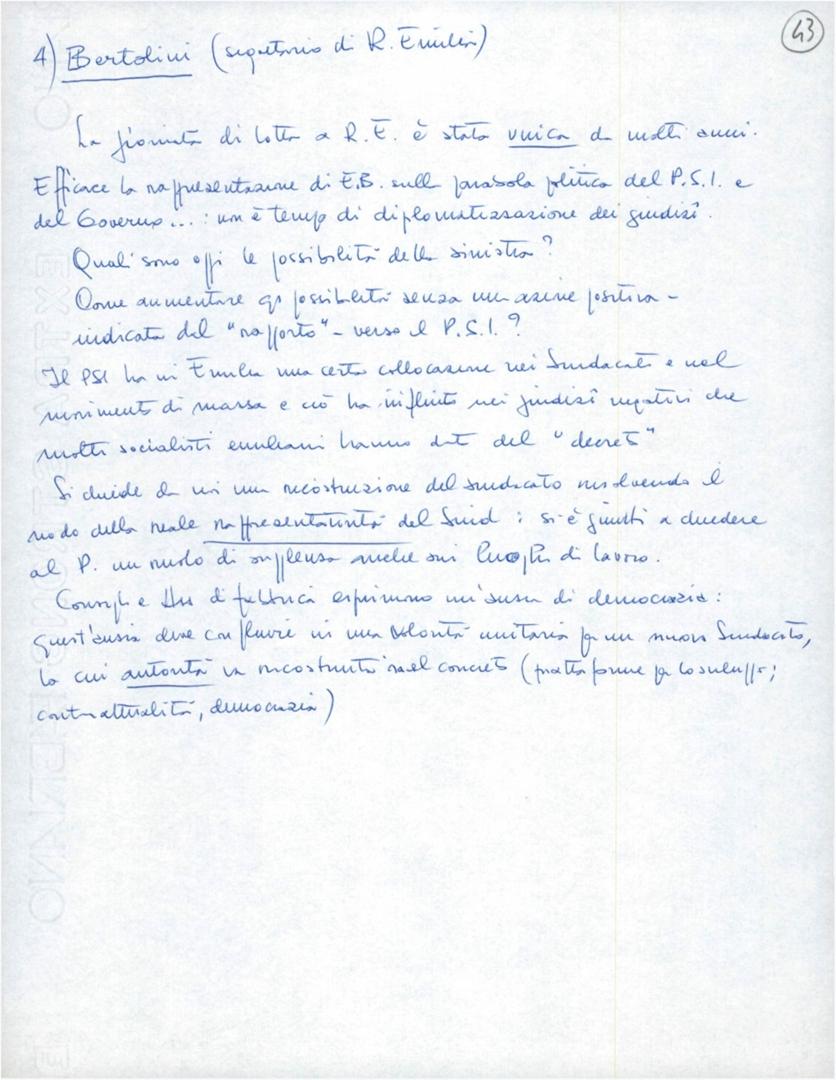 43
4) Bertolini (segretario di R. Emilia)
La giornata di lotta a R.E. è stata unica da molti anni.
Efficace la rappresentazione di E.B. sulla parabola politica del P.S.I. e
del Governo...: non è tempo di diplomatizzazione dei giudizi.
Quali sono oggi le possibilità della sinistra?
Come aumentare qs possibilità senza un'azione positiva -
indicata dal "rapporto" - verso il P.S.I.?
Il PSI ha in Emilia una certa collocazione nei Sindacati e nel
movimento di massa e ciò ha influito nei giudizi negativi che
molti socialisti emiliani hanno dato del "decreto"
Si chiede da noi una ricostruzione del sindacato risolvendo il
nodo della reale rappresentatività del Sind: si è giunti a chiedere
al P. un ruolo di supplenza anche sui luoghi di lavoro.
Consigli e di fabbrica esprimono un'ansia di democrazia:
Quest'ansia deve confluire in una volontà unitaria per un nuovo Sindacato,
la cui autorità va ricostruita nel concreto (piattaforme per lo sviluppo;
contrattualità, democrazia)